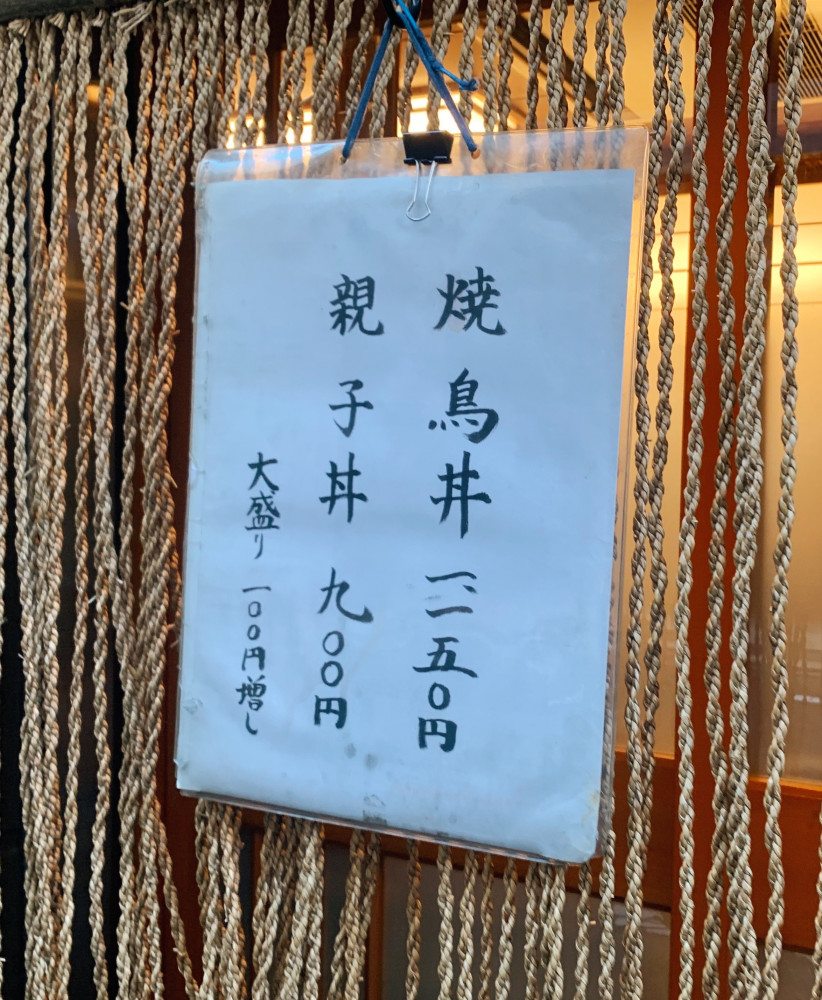 焼鳥丼 一、一五〇円
親子丼 九〇〇円
大盛り 一〇〇円増し